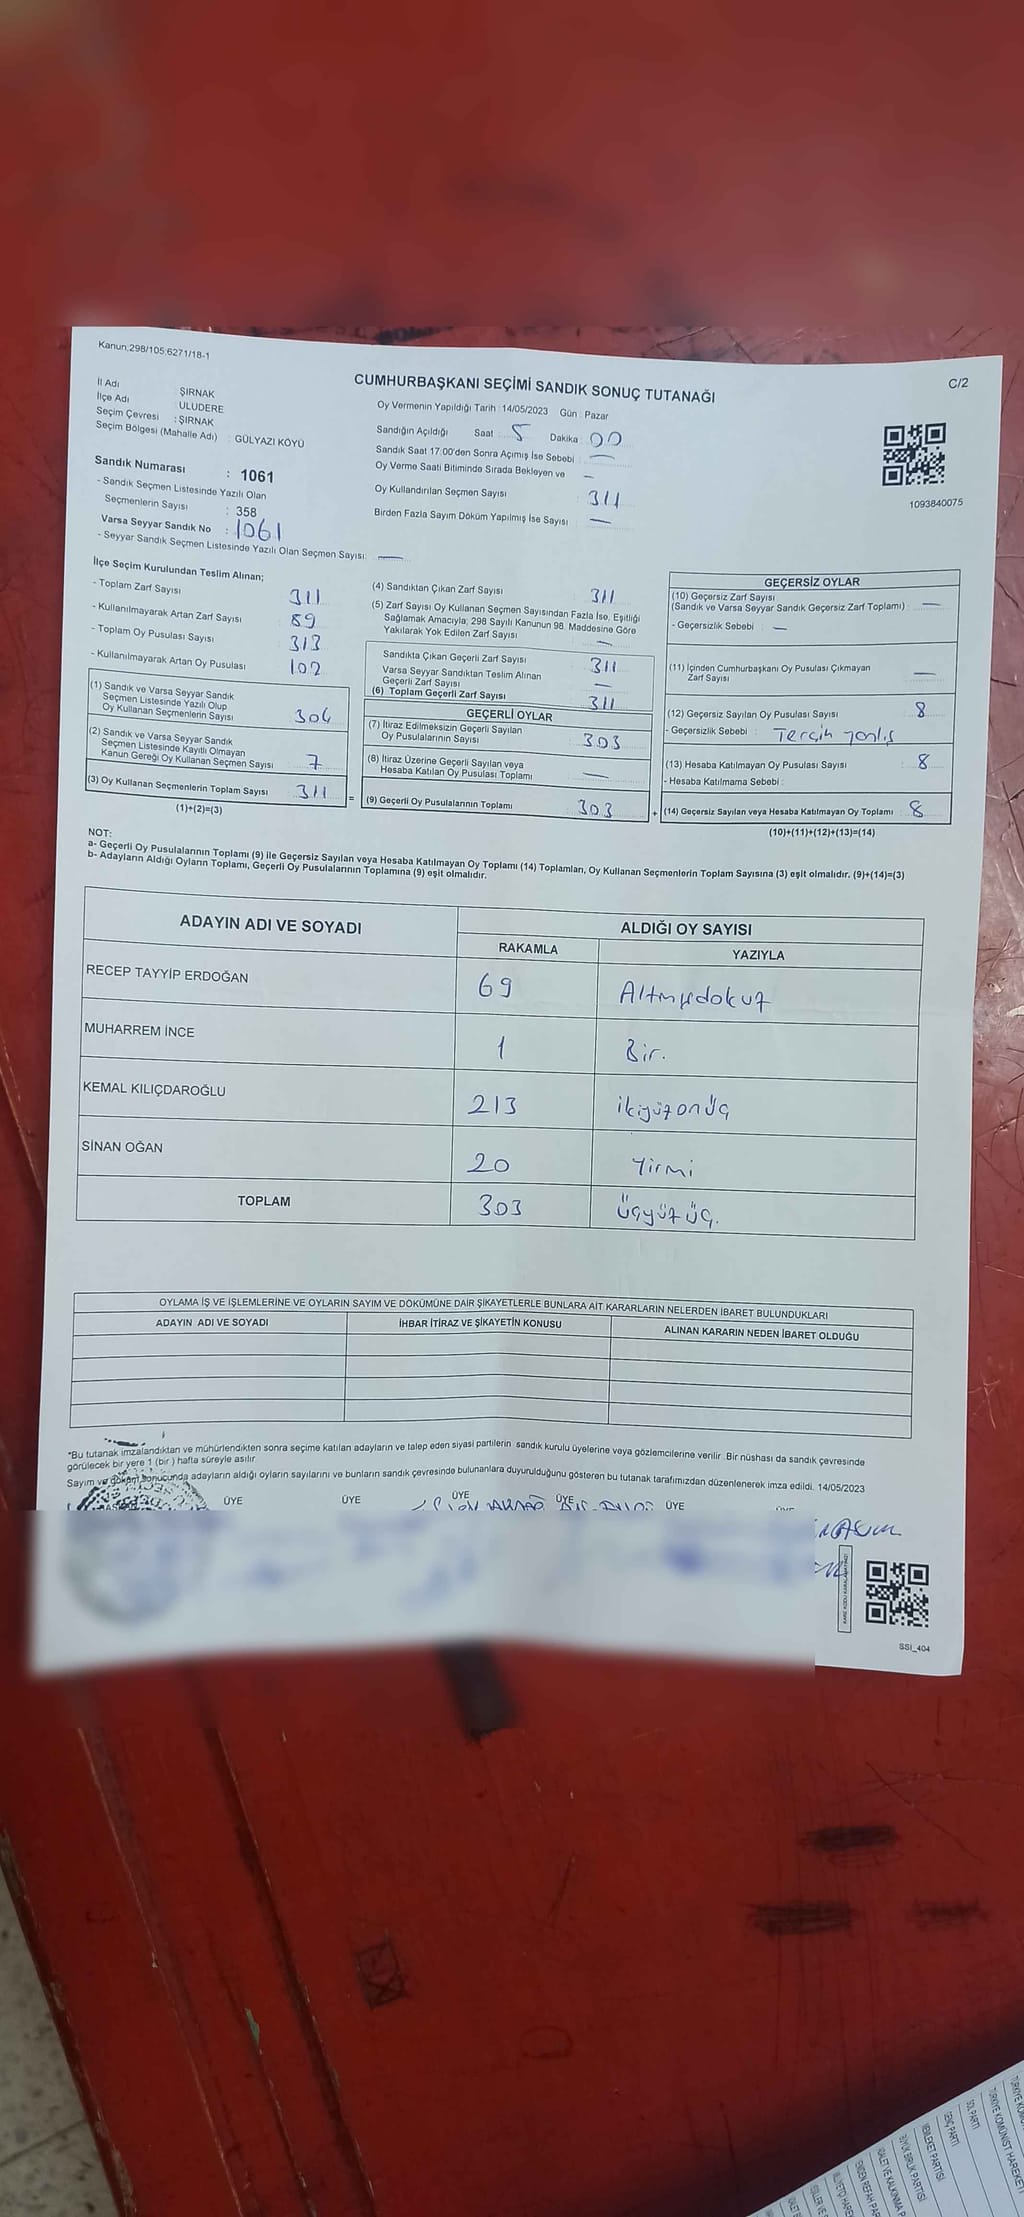 Kanun.298/105.6271/18-1
C/2
CUMHURBAŞKANI SEÇİMİ SANDIK SONUÇ TUTANAĞI
İl Adı : ŞIRNAK
İlçe Adı : ULUDERE
Seçim Çevresi : ŞIRNAK
Seçim Bölgesi (Mahalle Adı) : GÜLYAZI KÖYÜ
Sandık Numarası : 1061
- Sandık Seçmen Listesinde Yazılı Olan
Seçmenlerin Sayısı : 358
Varsa Seyyar Sandık No : 1061
- Seyyar Sandık Seçmen Listesinde Yazılı Olan Seçmen Sayısı: —
Oy Vermenin Yapıldığı Tarih : 14/05/2023 Gün : Pazar
Sandığın Açıldığı Saat : 5 Dakika : 00
Sandık Saat 17.00'den Sonra Açımış İse Sebebi : —
Oy Verme Saati Bitiminde Sırada Bekleyen ve —
Oy Kullandırılan Seçmen Sayısı 311
Birden Fazla Sayım Döküm Yapılmış İse Sayısı : —
1093840075
İlçe Seçim Kurulundan Teslim Alınan;
- Toplam Zarf Sayısı 311
- Kullanılmayarak Artan Zarf Sayısı 89
- Toplam Oy Pusulası Sayısı 313
- Kullanılmayarak Artan Oy Pusulası 102
(1) Sandık ve Varsa Seyyar Sandık
Seçmen Listesinde Yazılı Olup
Oy Kullanan Seçmenlerin Sayısı 304
(2) Sandık ve Varsa Seyyar Sandık
Seçmen Listesinde Kayıtlı Olmayan
Kanun Gereği Oy Kullanan Seçmen Sayısı 7
(3) Oy Kullanan Seçmenlerin Toplam Sayısı 311 =
(1)+(2)=(3)
(4) Sandıktan Çıkan Zarf Sayısı 311
(5) Zarf Sayısı Oy Kullanan Seçmen Sayısından Fazla İse, Eşitliği
Sağlamak Amacıyla; 298 Sayılı Kanunun 98. Maddesine Göre
Yakılarak Yok Edilen Zarf Sayısı —
Sandıkta Çıkan Geçerli Zarf Sayısı 311
Varsa Seyyar Sandıktan Teslim Alınan
Geçerli Zarf Sayısı —
(6) Toplam Geçerli Zarf Sayısı 311
GEÇERLİ OYLAR
(7) İtiraz Edilmeksizin Geçerli Sayılan
Oy Pusulalarının Sayısı 303
(8) İtiraz Üzerine Geçerli Sayılan veya
Hesaba Katılan Oy Pusulası Toplamı —
(9) Geçerli Oy Pusulalarının Toplamı 303 +
GEÇERSİZ OYLAR
(10) Geçersiz Zarf Sayısı
(Sandık ve Varsa Seyyar Sandık Geçersiz Zarf Toplamı) : —
- Geçersizlik Sebebi : —
(11) İçinden Cumhurbaşkanı Oy Pusulası Çıkmayan
Zarf Sayısı —
(12) Geçersiz Sayılan Oy Pusulası Sayısı 8
- Geçersizlik Sebebi : Tercih yanlış
(13) Hesaba Katılmayan Oy Pusulası Sayısı : 8
- Hesaba Katılmama Sebebi :
(14) Geçersiz Sayılan veya Hesaba Katılmayan Oy Toplamı : 8
(10)+(11)+(12)+(13)=(14)
NOT:
a- Geçerli Oy Pusulalarının Toplamı (9) ile Geçersiz Sayılan veya Hesaba Katılmayan Oy Toplamı (14) Toplamları, Oy Kullanan Seçmenlerin Toplam Sayısına (3) eşit olmalıdır. (9)+(14)=(3)
b- Adayların Aldığı Oyların Toplamı, Geçerli Oy Pusulalarının Toplamına (9) eşit olmalıdır.
ADAYIN ADI VE SOYADI ALDIĞI OY SAYISI
RAKAMLA YAZIYLA
RECEP TAYYİP ERDOĞAN 69 Altmışdokuz
MUHARREM İNCE 1 Bir.
KEMAL KILIÇDAROĞLU 213 ikiyüzonüç
SİNAN OĞAN 20 Yirmi
TOPLAM 303 üçyüzüç.
OYLAMA İŞ VE İŞLEMLERİNE VE OYLARIN SAYIM VE DÖKÜMÜNE DAİR ŞİKAYETLERLE BUNLARA AİT KARARLARIN NELERDEN İBARET BULUNDUKLARI
ADAYIN ADI VE SOYADI İHBAR İTİRAZ VE ŞİKAYETİN KONUSU ALINAN KARARIN NEDEN İBARET OLDUĞU
*Bu tutanak imzalandıktan ve mühürlendikten sonra seçime katılan adayların ve talep eden siyasi partilerin sandık kurulu üyelerine veya gözlemcilerine verilir. Bir nüshası da sandık çevresinde
görülecek bir yere 1 (bir ) hafta süreyle asılır.
Sayım ve döküm sonucunda adayların aldığı oyların sayılarını ve bunların sandık çevresinde bulunanlara duyurulduğunu gösteren bu tutanak tarafımızdan düzenlenerek imza edildi. 14/05/2023
ÜYE ÜYE ÜYE ÜYE ÜYE
SSİ_404
TÜRKİYE KOMÜNİST HAREKETİ
SOL PARTİ
GENÇ PARTİ
MEMLEKET PARTİSİ
BÜYÜK BİRLİK PARTİSİ